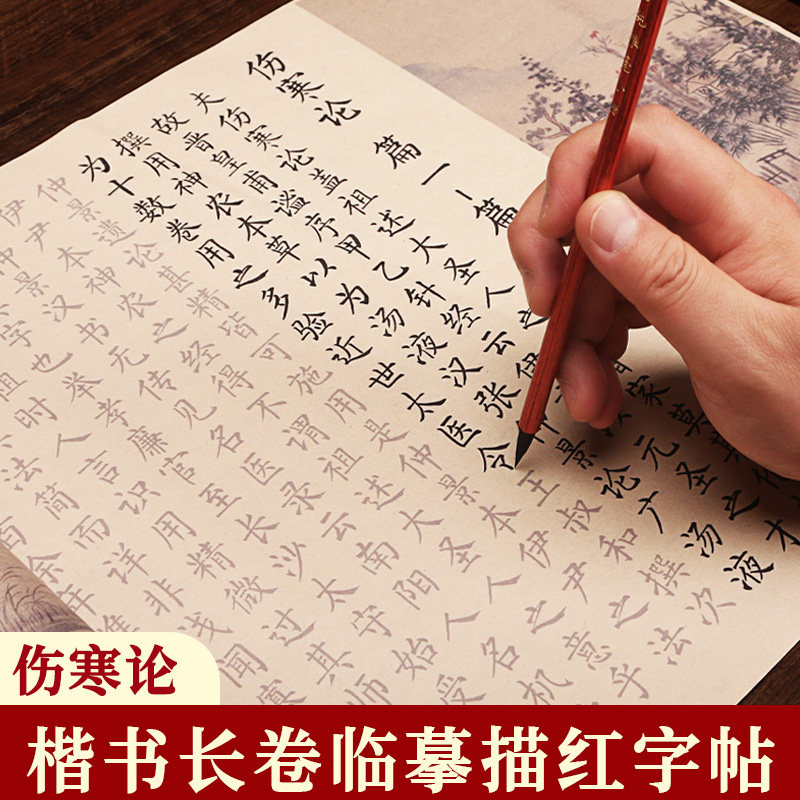 伤寒论 篇一-篇
夫伤寒论盖祖述大圣人之家莫其
故晋皇甫谧序甲乙针经云伊元圣之才
撰用神农本草以为汤液汉张仲景论广汤液
为十数卷用之多验近世太医令王叔和撰次
仲景遗论甚精皆可施用是仲景本伊尹之法
伊尹本神农之经得不谓祖述大圣人之意乎
仲景汉书无传见名医录云南阳人名机
字也举孝廉官至长沙太守始受
祖时人言识用精微过其师
法简而详非浅闻寡
伤寒论
楷书长卷临摹描红字帖